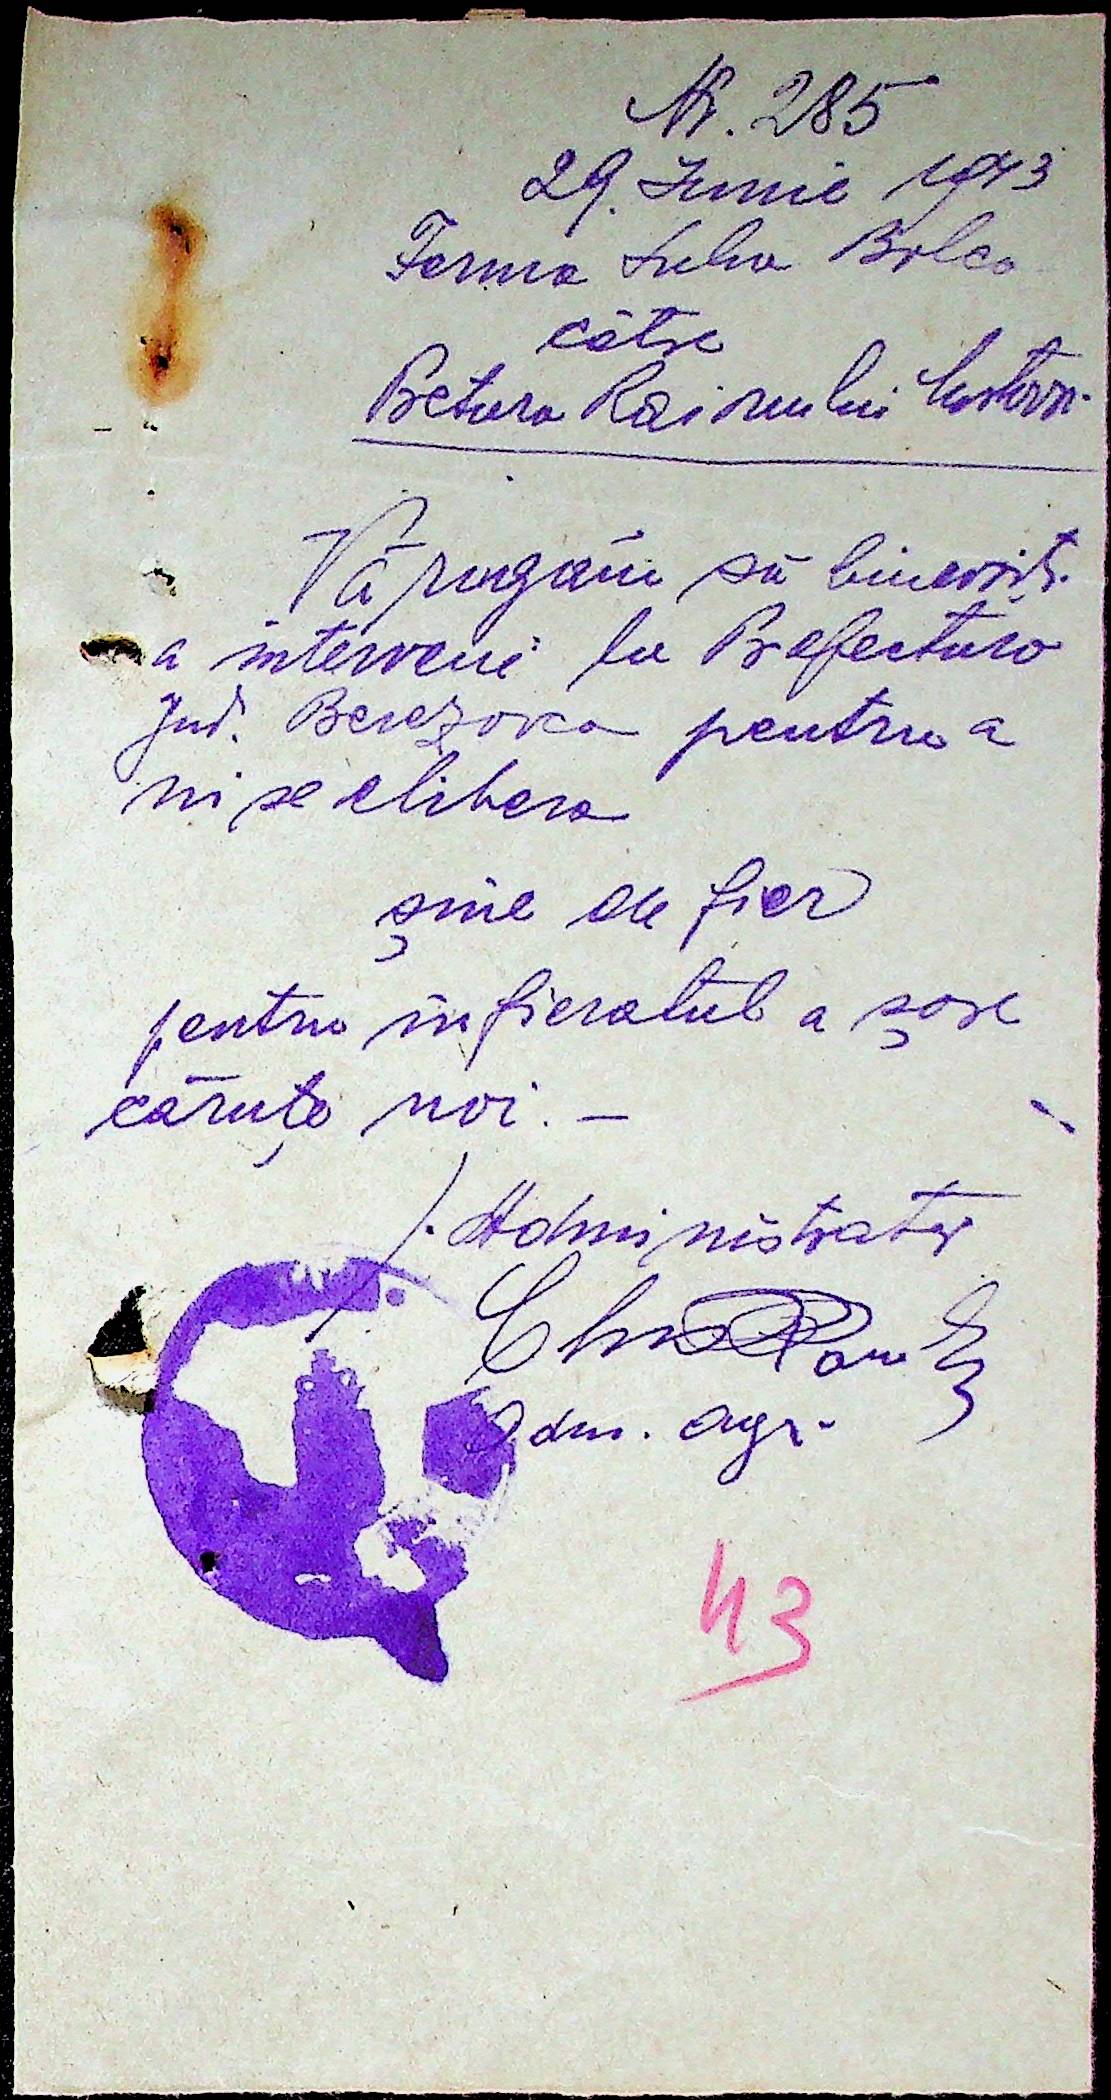 Nr. 285
29. Iunie 1943
Ferma Suha Balca
către
Pretura Raionului
Vă rugăm să binevoiți
a interveni la Prefectura
Jud. Berezovca pentru a
ni se elibera
șine de fier
pentru înfieratul a șase
căruțe noi. —
/. Administrator
Adm. agr.
43